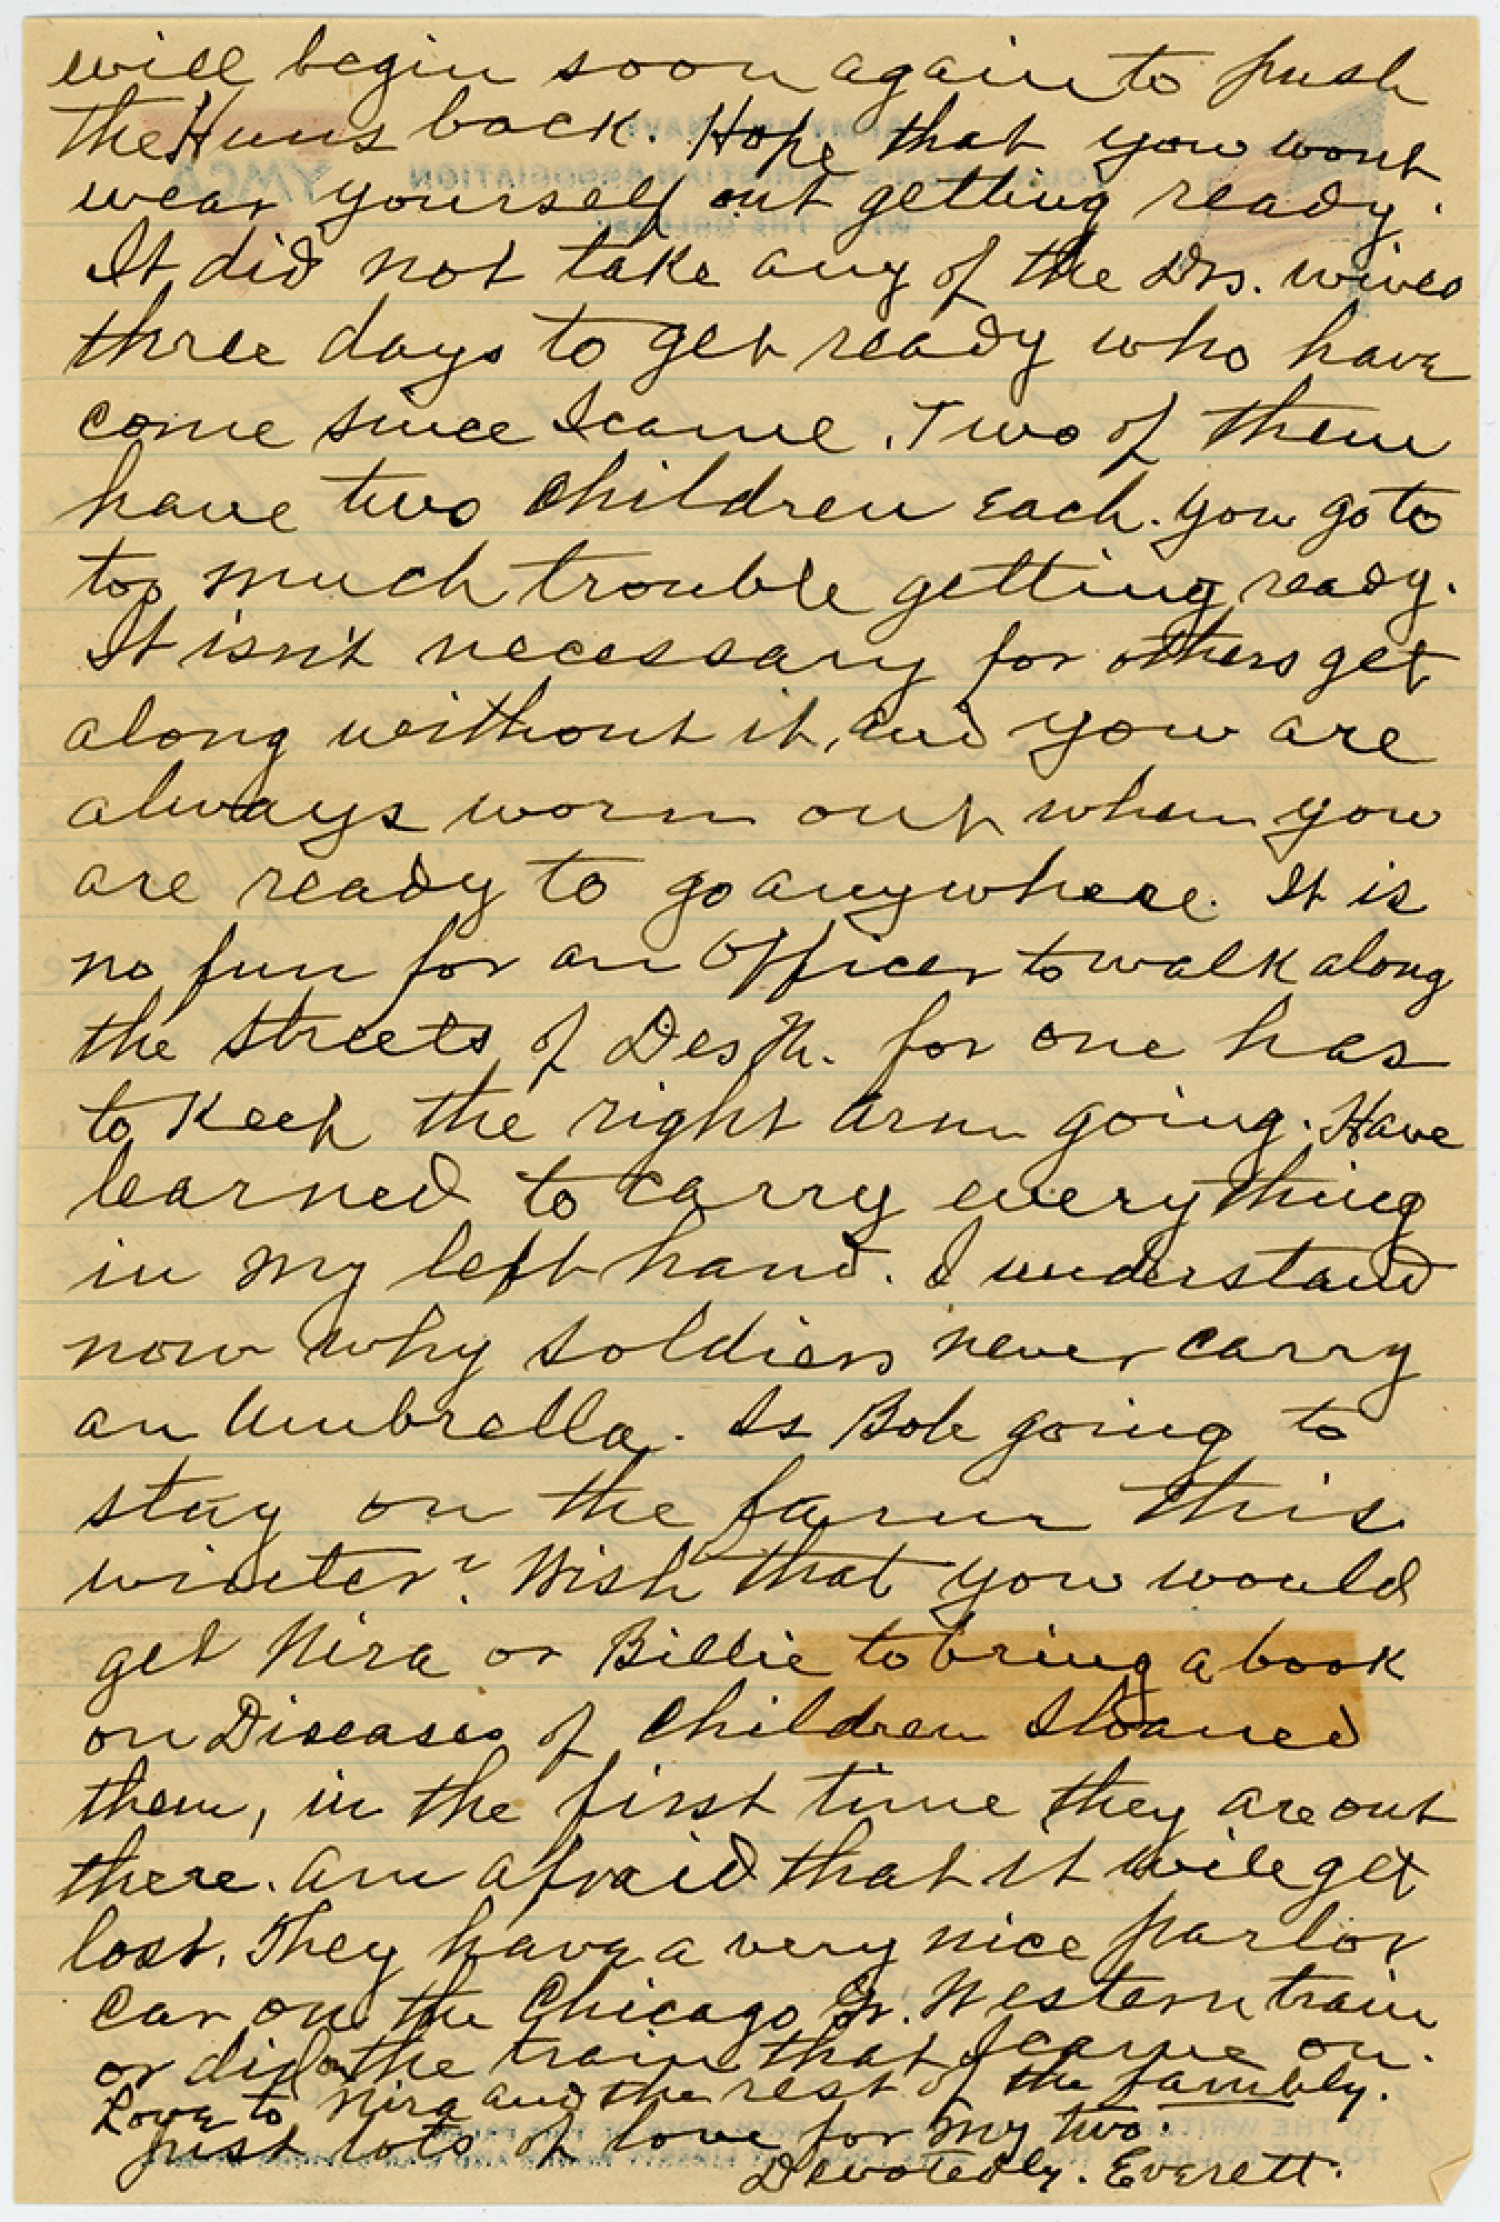 will begin soon again to push
the Huns back. Hope that you wont
wear yourself out getting ready.
It did not take any of the Drs. wives
three days to get ready who have
come since I came. Two of them
have two children each. You go to
too much trouble getting ready.
It isn't necessary for others get
along without it, and you are
always worn out when you
are ready to go anywhere. It is
no fun for an Officer to walk along
the streets of Des M. for one has
to keep the right arm going. Have
learned to carry everything
in my left hand. I understand
now why soldiers never carry
an umbrella. Is Bob going to
stay on the farm this
winter? Wish that you would
get Nira or Billie to bring a book
on Diseases of Children I loaned
them, in the first time they are out
there. Am afraid that it will get
lost. They have a very nice parlor
car on the Chicago Gr. Western train
or did on the train that I came on.
Love to Nira and the rest of the family.
Just lots of love for my two.
Devotedly. Everett.